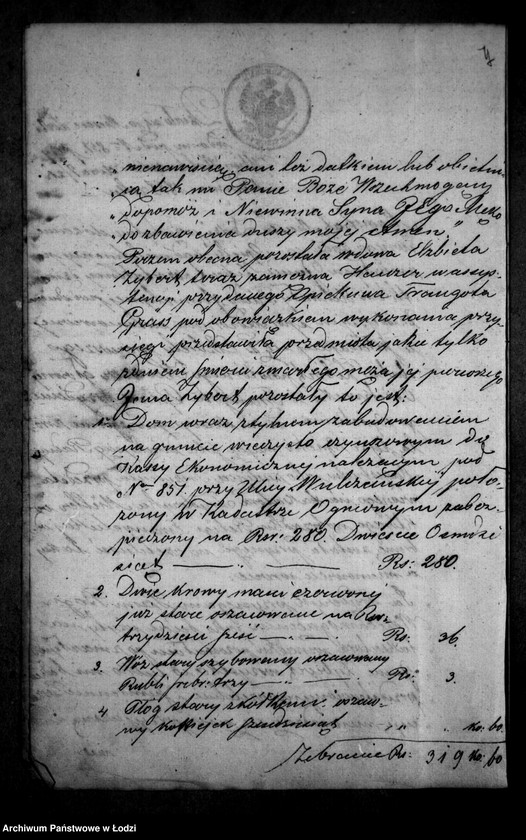 nienawiścią, ani też datkiem lub obietni-
"cą tak mi Panie Boże Wszechmogący
"Dopomóż i Niewinna Syna Jego Męko
"do zbawienia duszy mojej amen."
Poczem obecna pozostała wdowa Elżbieta
Zybert teraz zamężna Heuzer w assys-
tencyi przydanego Opiekuna Traugota
Grass pod obowiązkiem wykonania przy-
sięgi przedstawiła przedmiota jakie tylko
zdaniem śmierci zmarłego męża jej pierwszego
Zybert pozostały to jest:
1. Dom wraz z tylnem zabudowaniem
na gruncie wieczysto czynszowym do
Kassy Ekonomicznej należącym pod
Nr 851 przy Ulicy Wulczańskiej poło-
żony w Kadastrze Ogniowym zabez-
pieczony na Rsr: 280. Dwieście Ośmdzie
siąt Rs: 280.
2. Dwie Krowy maści czerwonej
już stare oszacowane na Rsr.
trzydzieści sześć Rs. 36.
3. Wóz stary szybowany oszacowany
Rubli srebr: trzy Rs. 3.
4 Płóg stary z kółkami oszaco-
wany kopiejek sześćdziesiąt " " ko: 60.
Zebranie Rs. 319 ko: 60
Archiwum Państwowe w Łodzi